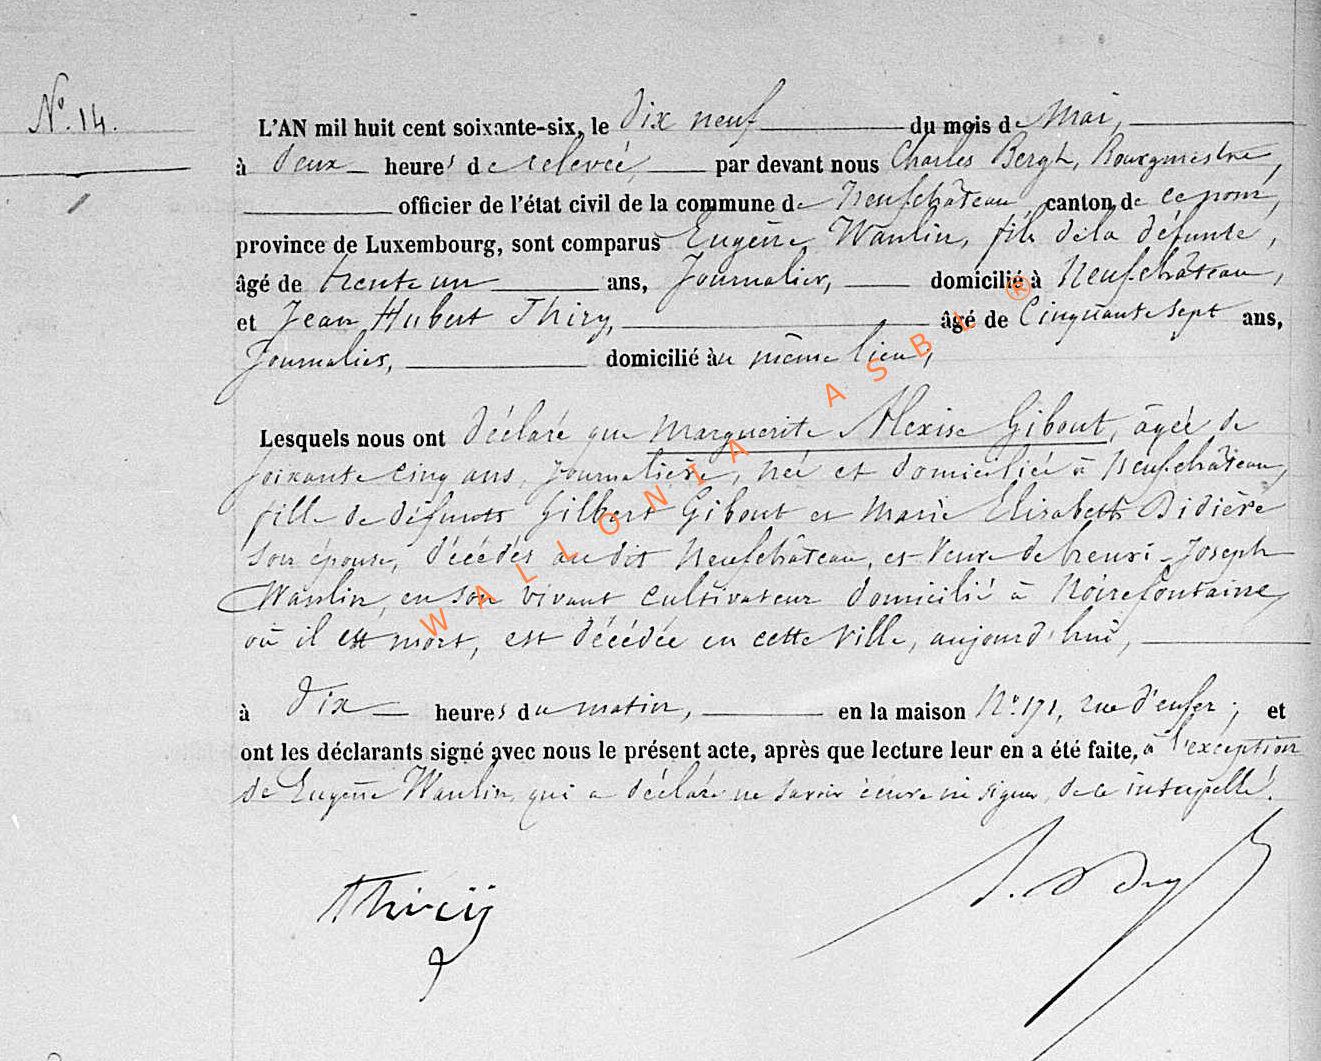 N° 14.
L'AN mil huit cent soixante-six, le dix neuf du mois de Mai,
à deux heures de relevée, par devant nous Charles Bergh, Bourgmestre,
officier de l'état civil de la commune de Neufchâteau canton de ce nom,
province de Luxembourg, sont comparus Eugène Waulin, fils de la défunte,
âgé de trente un ans, Journalier, domicilié à Neufchâteau,
et Jean Hubert Thiry, âgé de Cinquante sept ans,
Journalier, domicilié au même lieu,
Lesquels nous ont déclaré que Marguerite Alexise Gibout, âgée de
soixante cinq ans, journalière, née et domiciliée à Neufchâteau,
fille de défunts Gilbert Gibout et Marie Elisabeth Didière
son épouse, décédés au dit Neufchâteau, et Veuve de henri-Joseph
Waulin, en son vivant cultivateur domicilié à Noirefontaine,
où il est mort, est décédée en cette ville, aujourd'hui,
à dix heures du matin, en la maison N° 171, rue d'enfer ; et
ont les déclarants signé avec nous le présent acte, après que lecture leur en a été faite, à l'exception
de Eugène Waulin, qui a déclaré ne savoir écrire ni signer, de ce interpellé.
Thiry
WALLONIA ASBL ®